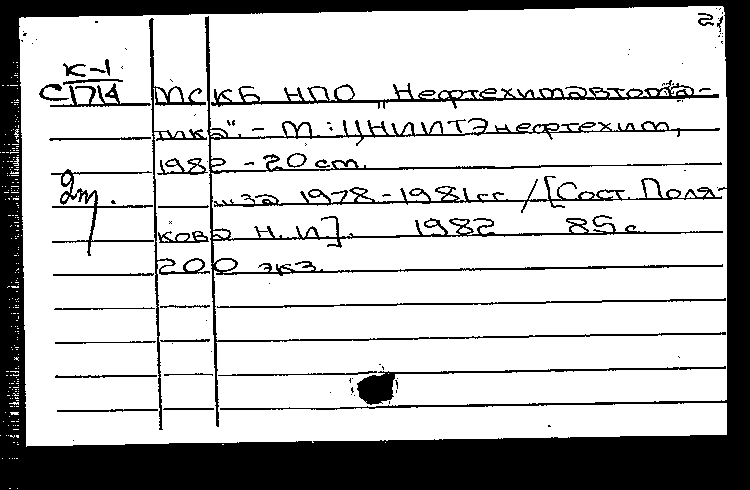 2
К-1
С1714 МСКБ НПО „Нефтехимавтома-
тика". - М.: ЦНИИТЭнефтехим,
1982 - 20 см.
2т. ...за 1978-1981гг. / [Сост. Поля-
кова Н. И]. 1982 85 с.
200 экз.